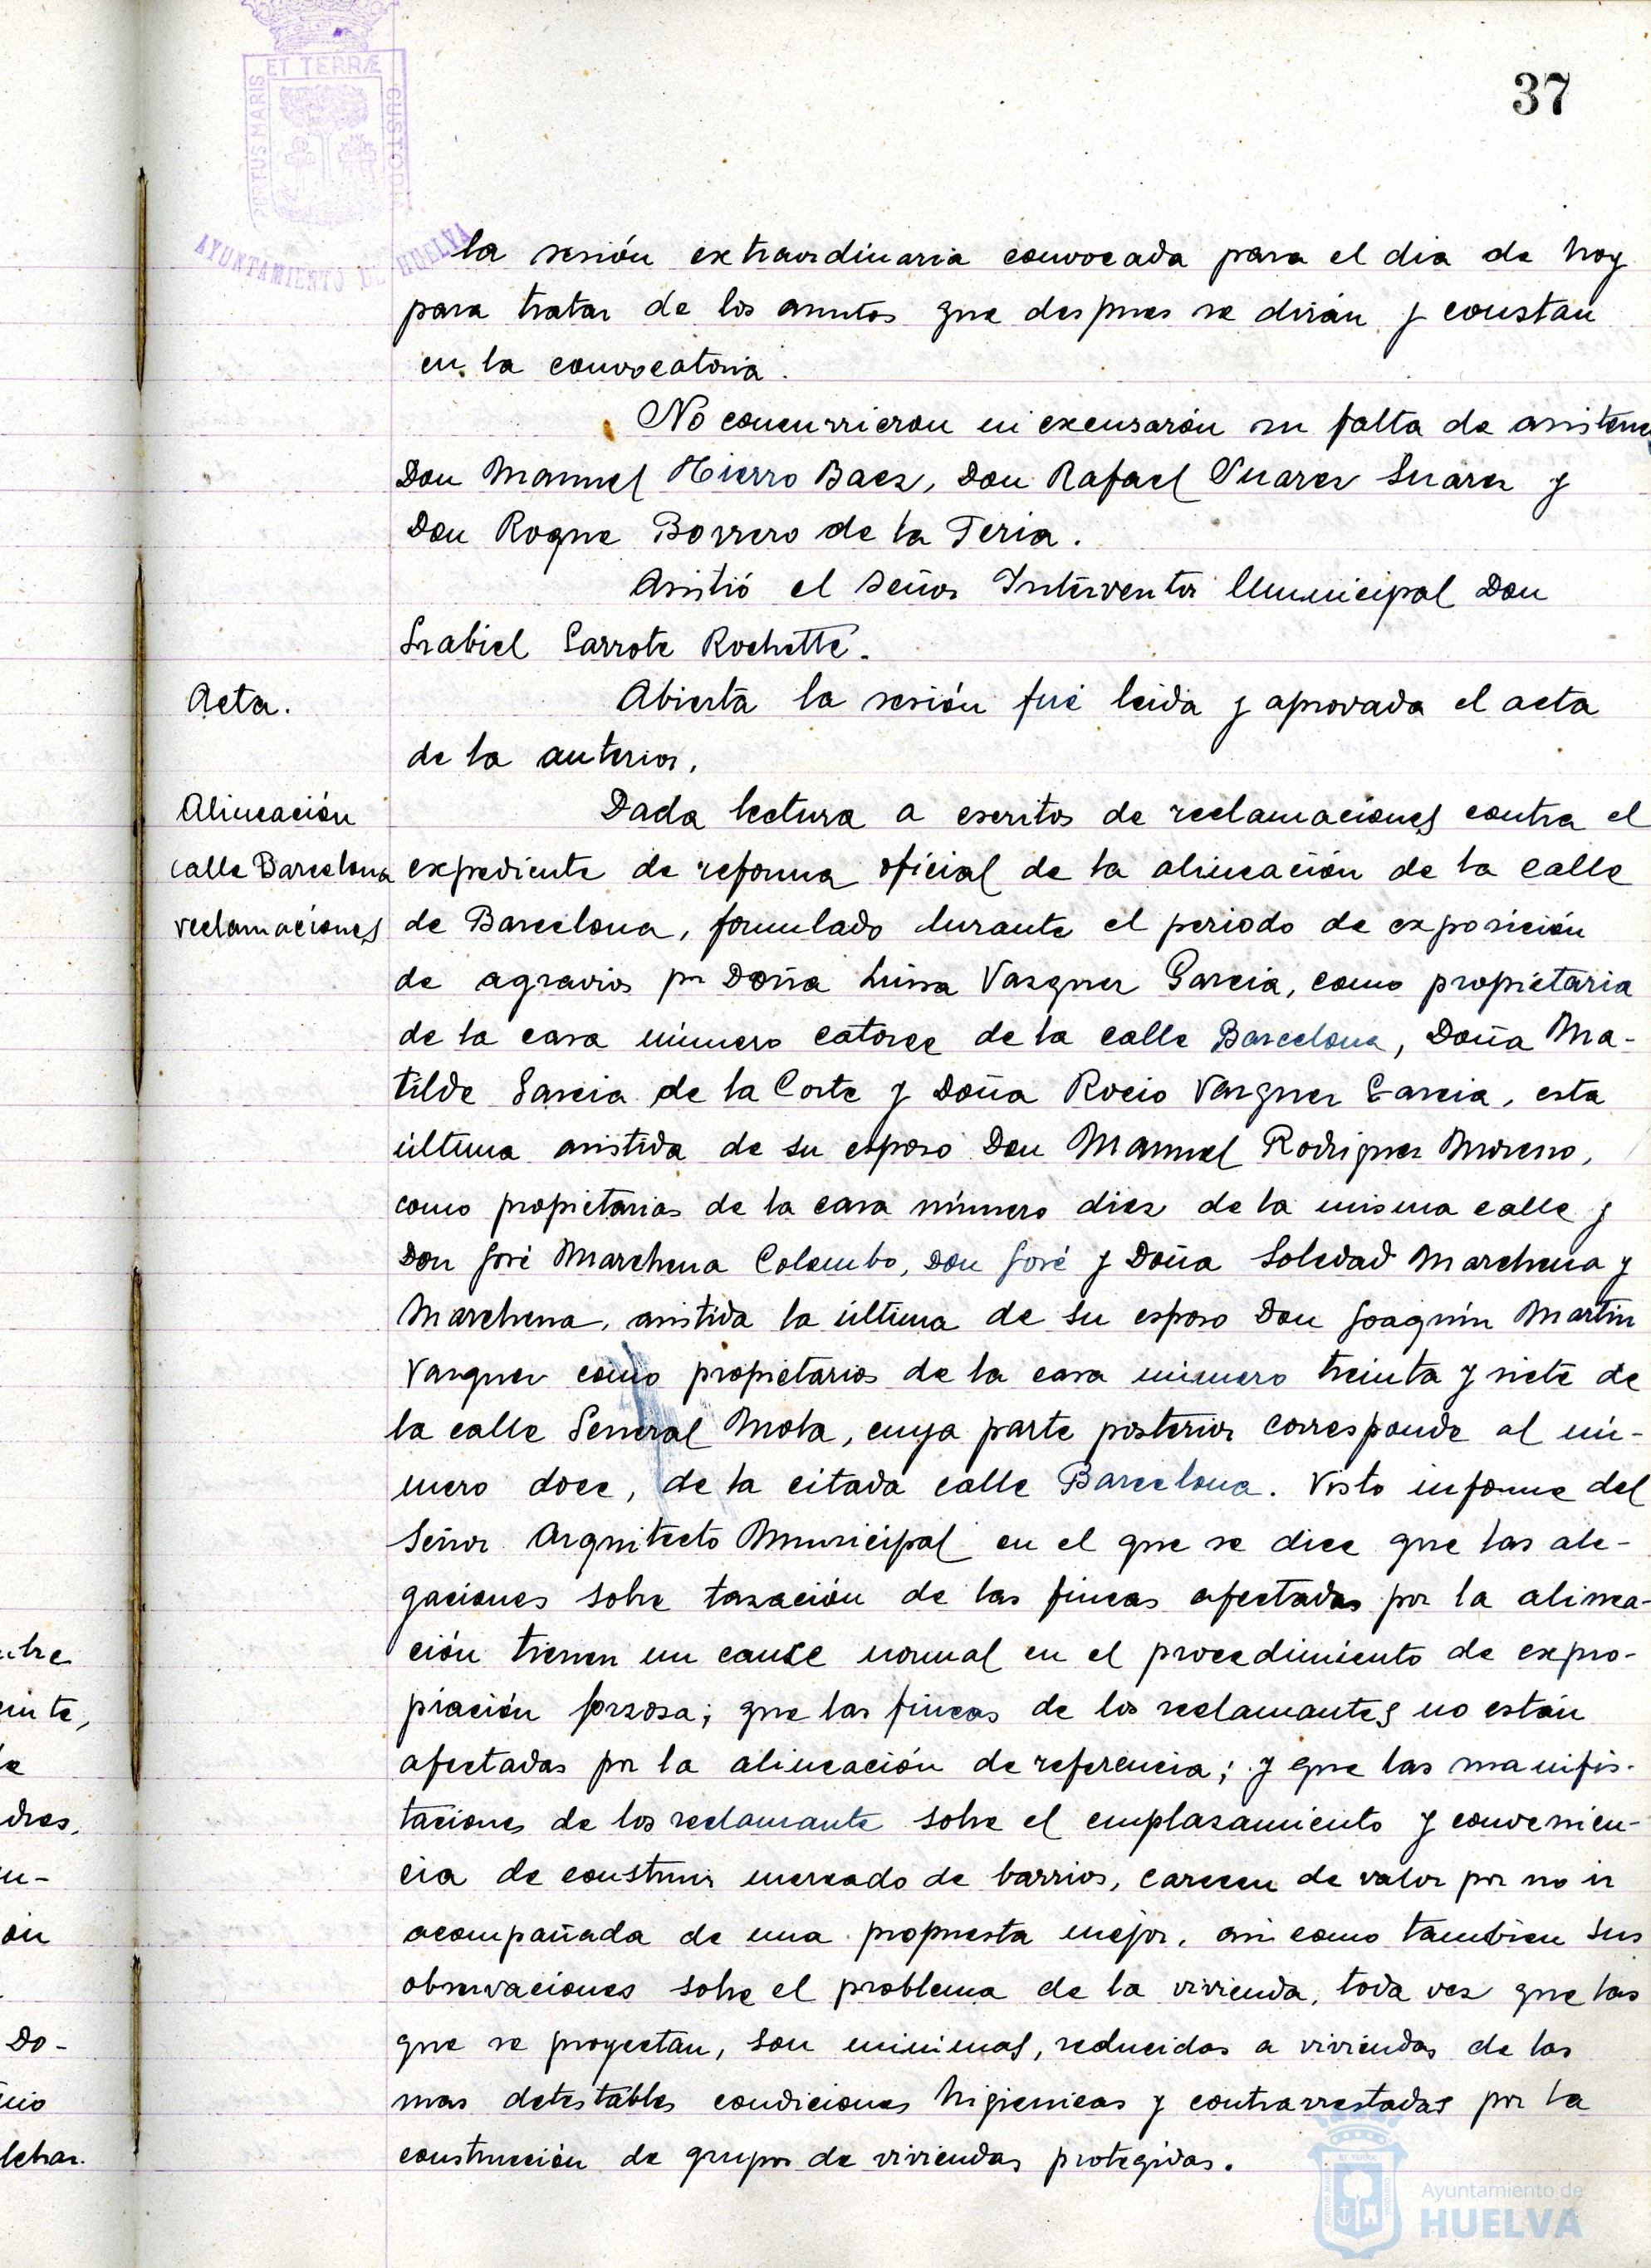 37
ET TERRÆ
PORTUS MARIS
CUSTODI
AYUNTAMIENTO DE HUELVA
la sesión extraordinaria convocada para el dia de hoy
para tratar de los asuntos que despues se dirán y constan
en la convocatoria.
No concurrieron ni excusarón su falta de asistenc
Don Manuel Hierro Baez, Don Rafael Suarez Suarez y
Don Roque Borrero de la Feria.
Asistió el Señor Interventor Municipal Don
Grabiel Garrote Rochette.
Acta.
Abierta la sesión fué leida y aprovada el acta
de la anterior.
Alineación
calle Barcelona
reclamaciones
Dada lectura a escritos de reclamaciones contra el
expediente de reforma oficial de la alineación de la calle
de Barcelona, formulado durante el periodo de exposición
de agravios por Doña Luisa Vazquez Garcia, como propietaria
de la casa número catorce de la calle Barcelona, Doña Ma-
tilde Garcia de la Corte y Doña Rocio Vazquez Garcia, esta
última asistida de su esposo Don Manuel Rodriguez Moreno,
como propietarias de la casa número diez de la misma calle y
Don José Marchena Colombo, Don José y Doña Soledad Marchena y
Marchena, asistida la última de su esposo Don Joaquín Martin
Vazquez como propietarios de la casa número treinta y siete de
la calle General Mola, cuya parte posterior corresponde al nú-
mero doce, de la citada calle Barcelona. Visto informe del
Señor Arquitecto Municipal en el que se dice que las ale-
gaciones sobre tasación de las fincas afectadas por la alinea-
ción tienen un cause normal en el procedimiento de expro-
piación forzosa; que las fincas de los reclamantes no están
afectadas por la alineación de referencia; y que las manifis-
taciones de los reclamante sobre el emplazamiento y convenien-
cia de construir mercado de barrios, carecen de valor por no ir
acompañada de una propuesta mejor, asi como tambien sus
observaciones sobre el problema de la vivienda, toda vez que las
que se proyectan, son minimas, reducidas a viviendas de las
mas detestables condiciones higienicas y contrarrestadas por la
construcción de grupos de viviendas protegidas.
Ayuntamiento de
HUELVA